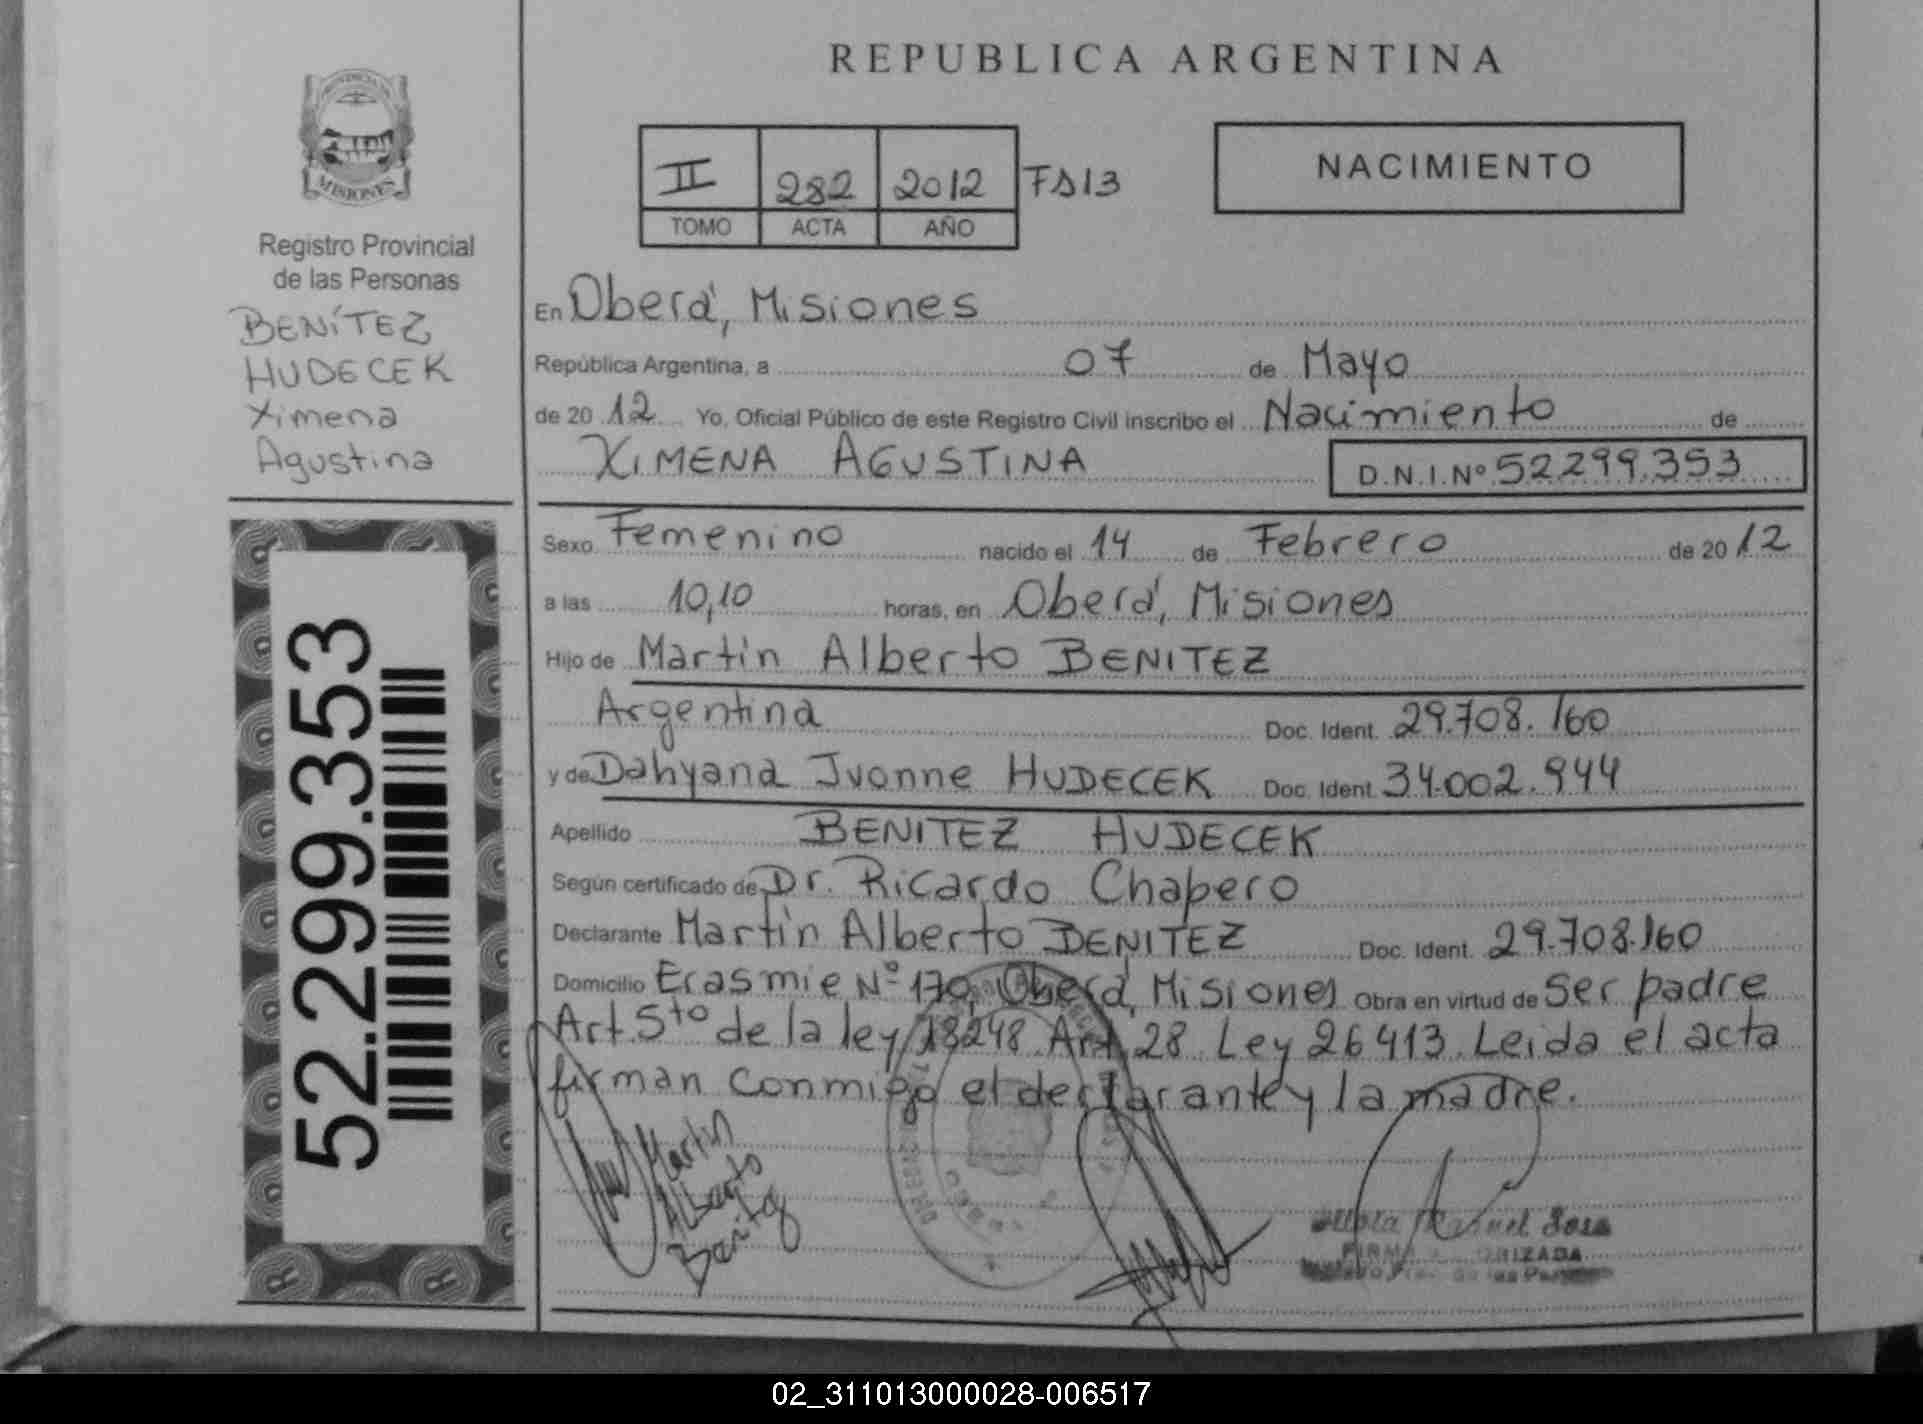 REPUBLICA ARGENTINA
PROVINCIA
MISIONES
Registro Provincial
de las Personas
BENÍTEZ
HUDECEK
Ximena
Agustina
52.299.353
II 282 2012 FS13
TOMO ACTA AÑO
NACIMIENTO
En Oberá, Misiones
República Argentina, a 07 de Mayo
de 20 12 Yo, Oficial Público de este Registro Civil inscribo el Nacimiento de
XIMENA AGUSTINA D.N.I.Nº 52.299.353
Sexo Femenino nacido el 14 de Febrero de 20 12
a las 10,10 horas, en Oberá, Misiones
Hijo de Martín Alberto BENITEZ
Argentina Doc. Ident. 29.708.160
y de Dahyana Ivonne HUDECEK Doc. Ident. 34.002.944
Apellido BENITEZ HUDECEK
Según certificado de Dr. Ricardo Chapero
Declarante Martín Alberto BENITEZ Doc. Ident. 29.708.160
Domicilio Erasmie Nº 170, Oberá, Misiones Obra en virtud de Ser padre
Art. 5to de la ley 18248 Art. 28 Ley 26413. Leida el acta
firman conmigo el declarante y la madre.
Martin
Alberto
Benitez
Sosa
FIRMA
02_311013000028-006517